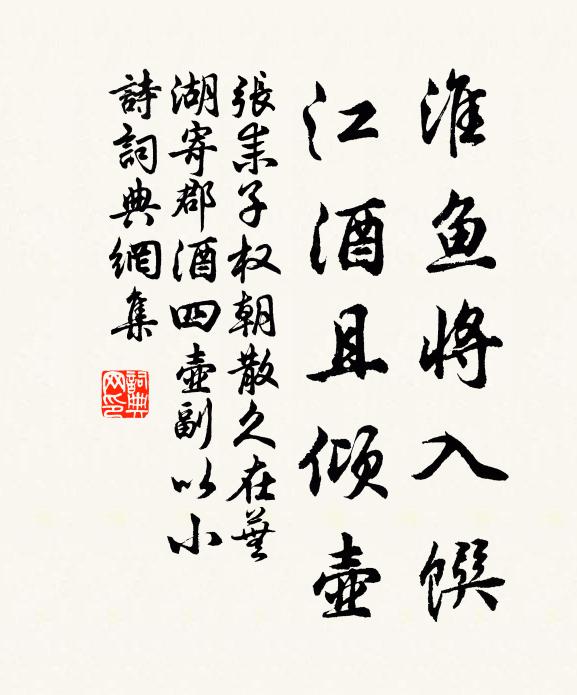 淮鱼将入馔
江酒且倾壶
張耒子权朝散久在蕪
湖寄郡酒四壷副以小
詩詞典網集
詞典
网印